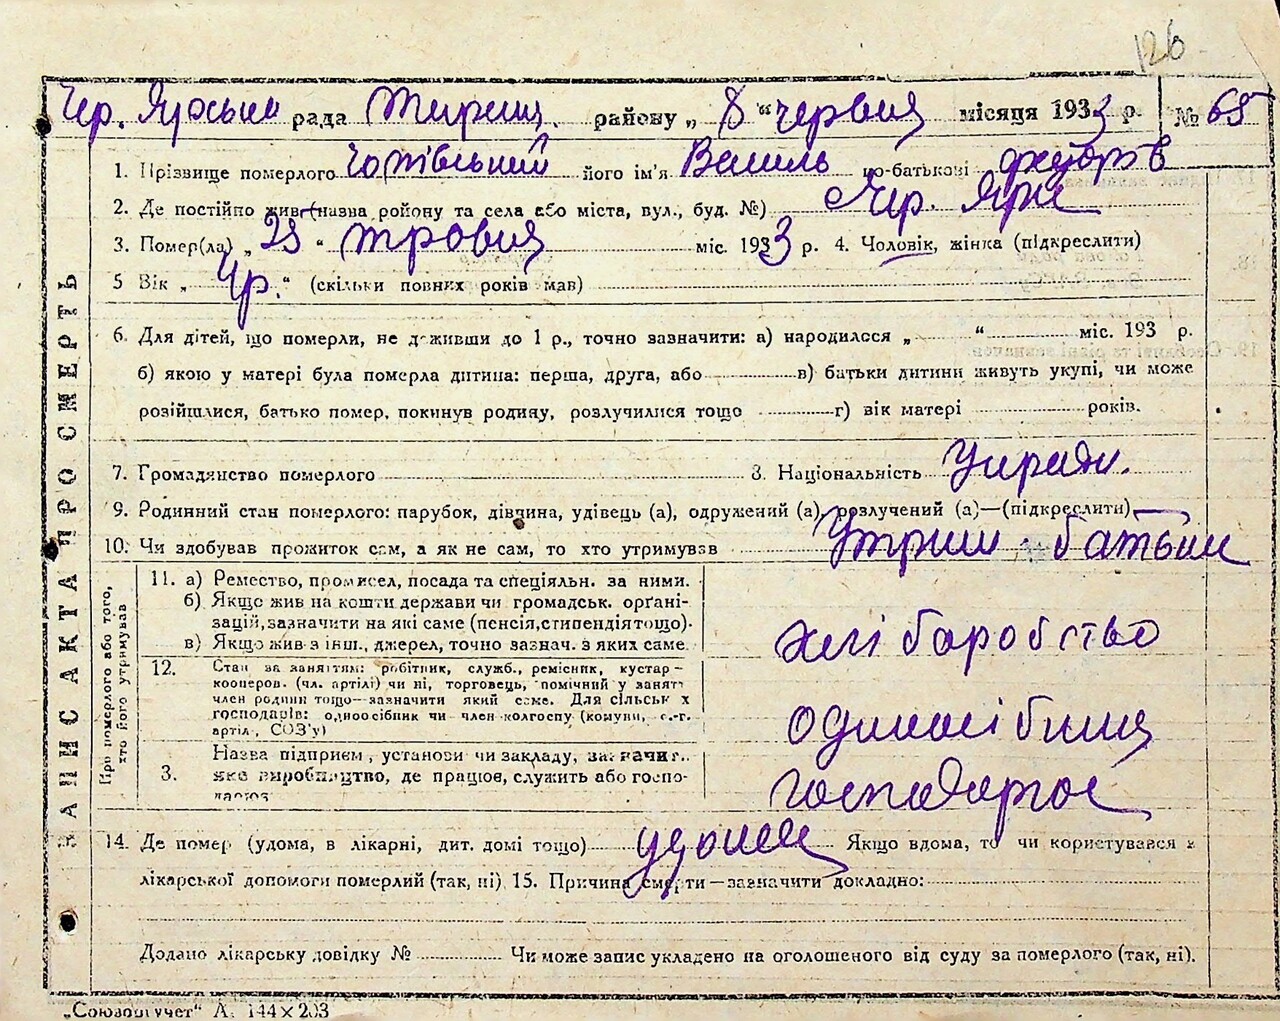 126
Чер. Ярської рада Тирищ. району „ 8 " червня місяця 1933 р. № 65
1. Прізвище померлого його ім'я Василь по-батькові
2. Де постійно жив (назва ройону та села або міста, вул., буд. №) Чер. Яри
3. Помер(ла) „ 25 " травня міс. 1933 р. 4. Чоловік, жінка (підкреслити)
5 Вік „ " (скільки повних років мав)
6. Для дітей, що померли, не доживши до 1 р., точно зазначити: а) народилося „ " міс. 193 р.
б) якою у матері була померла дитина: перша, друга, або в) батьки дитини живуть укупі, чи може
розійшлися, батько помер, покинув родину, розлучилися тощо г) вік матері років.
7. Громадянство померлого 8. Національність Україн.
9. Родинний стан померлого: парубок, дівчина, удівець (а), одружений (а), розлучений (а)—(підкреслити)
10. Чи здобував прожиток сам, а як не сам, то хто утримував Утрим. батьки
11. а) Ремество, промисел, посада та спеціяльн. за ними.
б) Якщо жив на кошти держави чи громадськ. орґані-
зацій, зазначити на які саме (пенсія, стипендія тощо).
в) Якщо жив з інш. джерел, точно зазнач. з яких саме.
хліборобство
12. Стан за заняттям: робітник, служб., ремісник, кустар-
кооперов. (чл. артілі) чи ні, торговець, помічний у занятт
член родини тощо—зазначити який саме. Для сільськ х
господарів: одноосібник чи член колгоспу (комуни, с.-г.
артіл., СОЗ'у)
одноосібник
Назва підприєм., установи чи закладу, зазначит.
3. яке виробництво, де працює, служить або госпо-
дарює
господарює
14. Де помер (удома, в лікарні, дит. домі тощо) удома Якщо вдома, то чи користувався з
лікарської допомоги померлий (так, ні) 15. Причина смерти—зазначити докладно:
Додано лікарську довідку № Чи може запис укладено на оголошеного від суду за померлого (так, ні).
ЗАПИС АКТА ПРО СМЕРТЬ
Про померлого або того,
хто його утримував
„Союзоргучет" А. 144×203